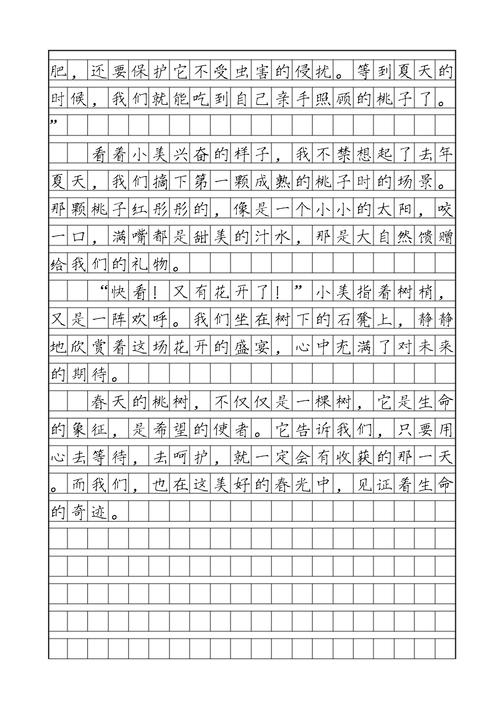 肥，还要保护它不受虫害的侵扰。等到夏天的
时候，我们就能吃到自己亲手照顾的桃子了。
”
看着小美兴奋的样子，我不禁想起了去年
夏天，我们摘下第一颗成熟的桃子时的场景。
那颗桃子红彤彤的，像是一个小小的太阳，咬
一口，满嘴都是甜美的汁水，那是大自然馈赠
给我们的礼物。
“快看！又有花开了！”小美指着树梢，
又是一阵欢呼。我们坐在树下的石凳上，静静
地欣赏着这场花开的盛宴，心中充满了对未来
的期待。
春天的桃树，不仅仅是一棵树，它是生命
的象征，是希望的使者。它告诉我们，只要用
心去等待，去呵护，就一定会有收获的那一天
。而我们，也在这美好的春光中，见证着生命
的奇迹。